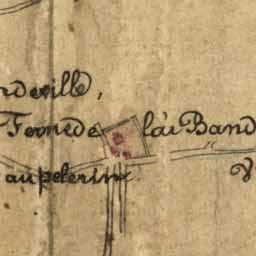 ndeville,
Ferme de la Band
au pelerin.